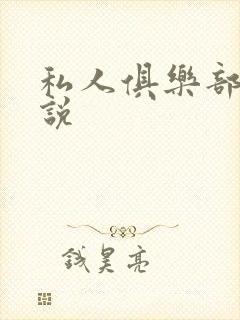 私人俱樂部
說
錢昊亮